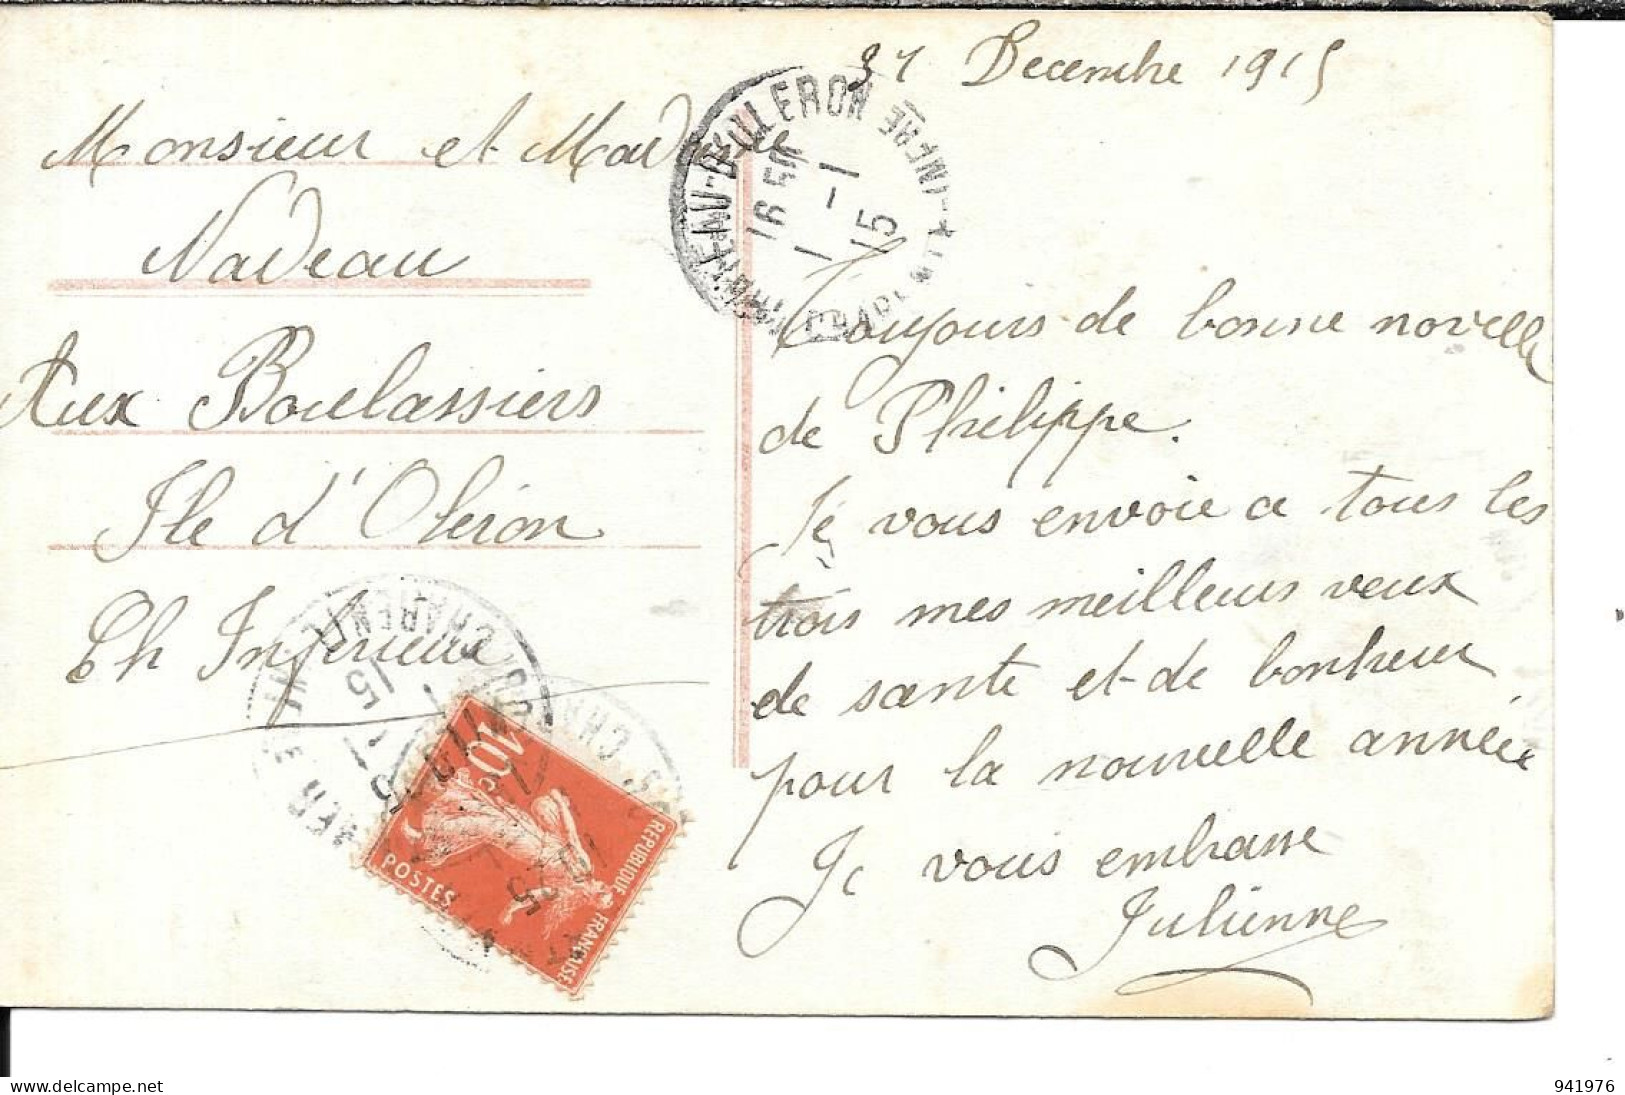 31 Decembre 1915
Monsieur et Madame
Nadeau
Aux Boulassiers
Ile d'Oleron
Ch Inferieure
Toujours de bonne novelle
de Philippe.
Je vous envoie a tous les
trois mes meilleurs veux
de sante et de bonheur
pour la nouvelle année
Je vous embrasse
Julienne
D'OLERON
INFRE
16 50
1 - 1
15
CHARENTE
15
10 25
10c
POSTES
REPUBLIQUE FRANÇAISE
www.delcampe.net
941976